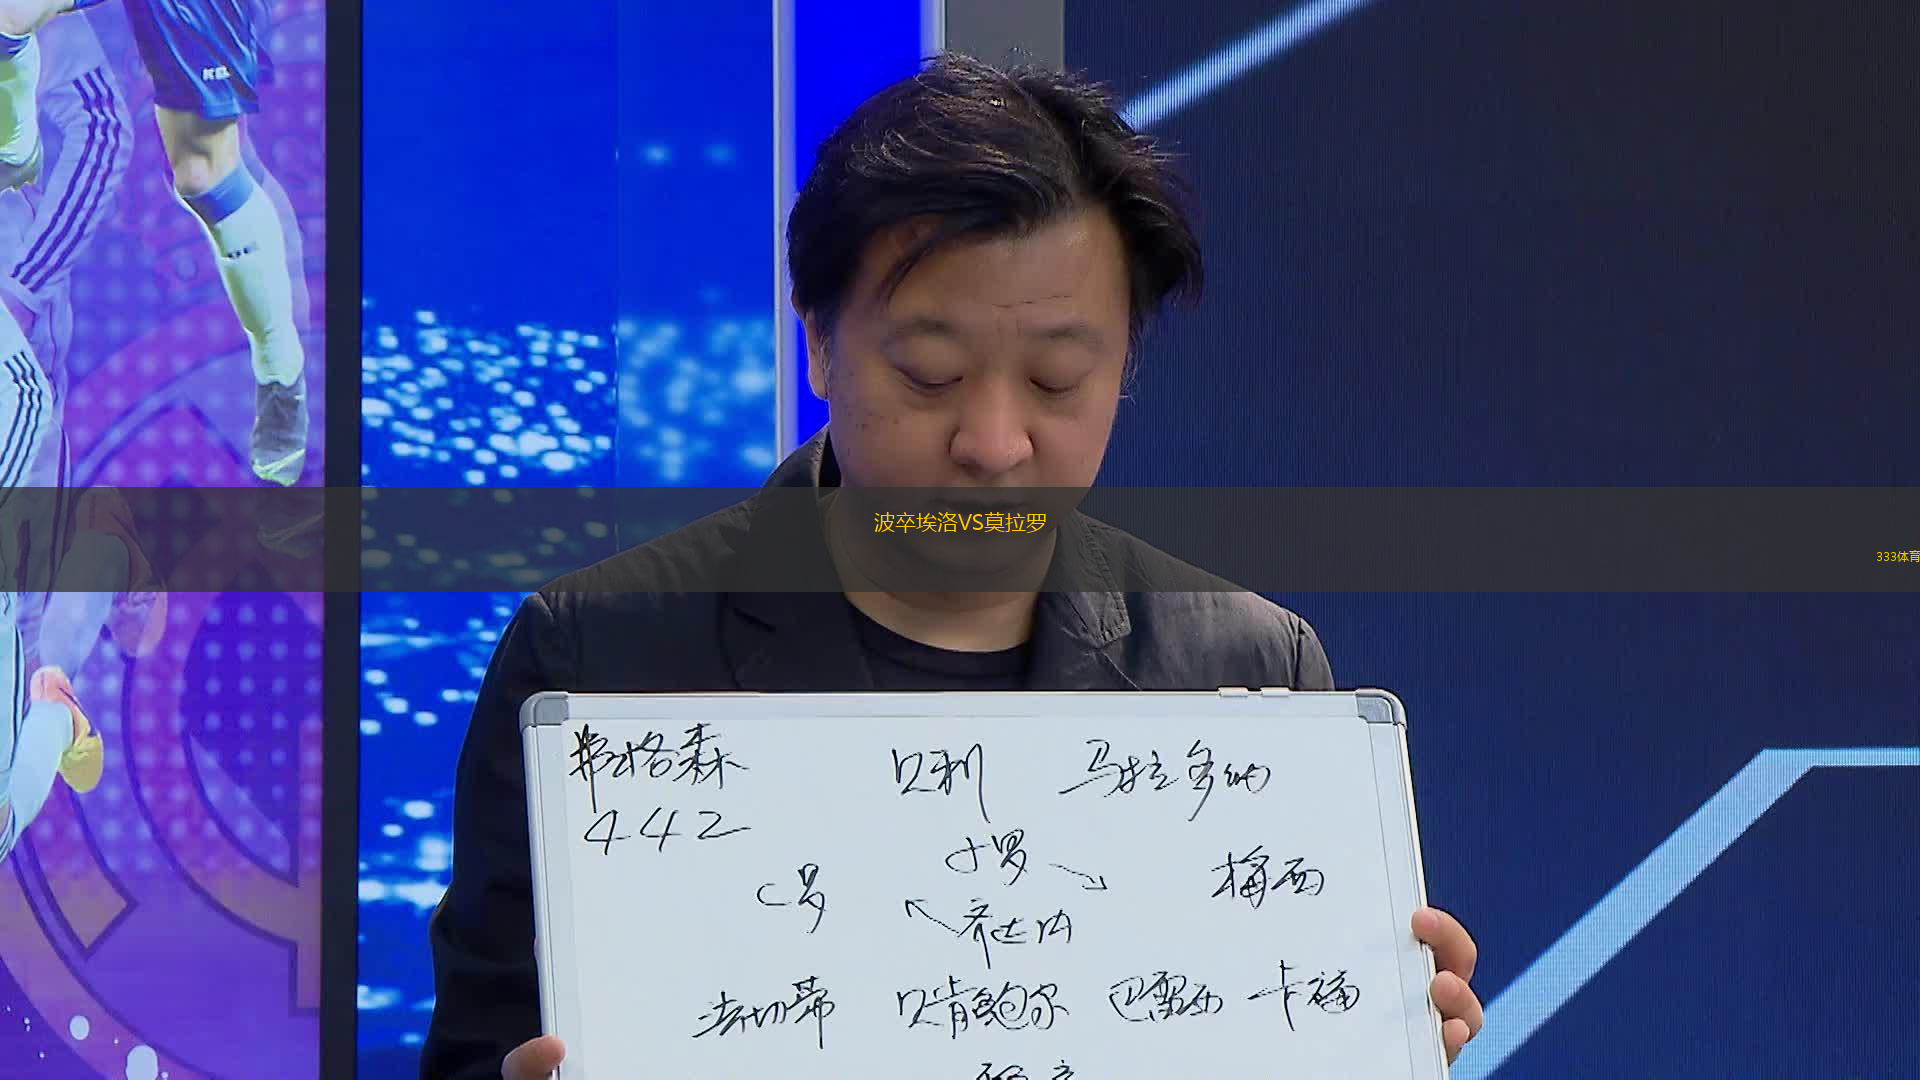 KEL
波卒埃洛VS莫拉罗
333体育
弗格森 贝利 马拉多纳
442
小罗
C罗 梅西
齐达内
法切蒂 贝肯鲍尔 巴雷西 卡福